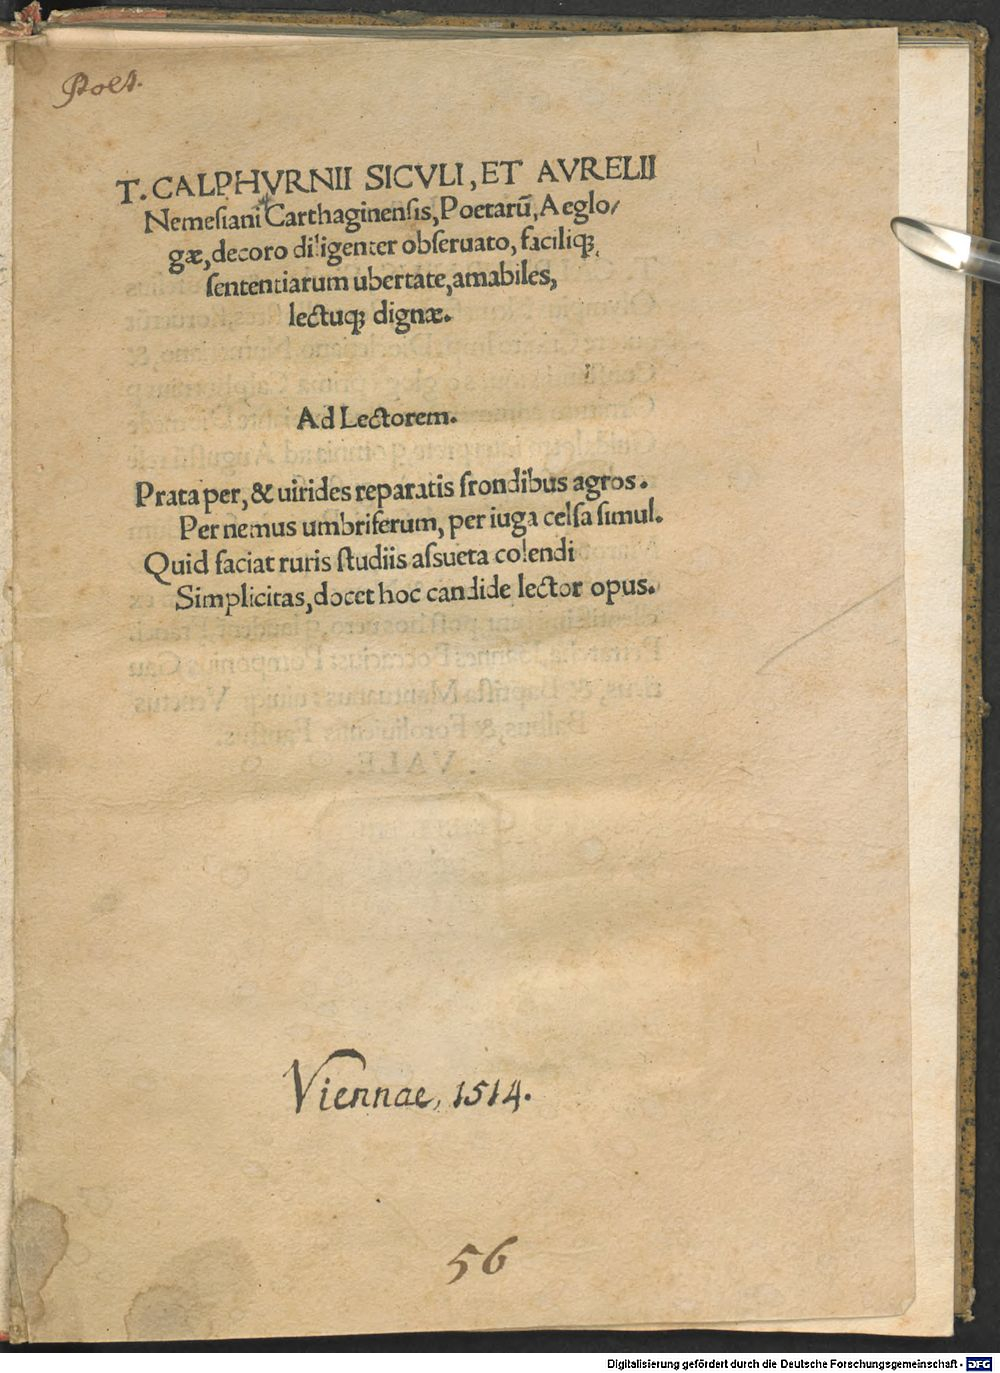 Poet.
T. CALPHVRNII SICVLI, ET AVRELII
Nemesiani Carthaginensis, Poetarũ, Aeglo/
gæ, decoro diligenter obseruato, faciliq;
sententiarum ubertate, amabiles,
lectuq; dignæ.
Ad Lectorem.
Prata per, & uirides reparatis frondibus agros.
Per nemus umbriferum, per iuga celsa simul.
Quid faciat ruris studiis assueta colendi
Simplicitas, docet hoc candide lector opus.
Viennae, 1514.
56
Digitalisierung gefördert durch die Deutsche Forschungsgemeinschaft - DFG